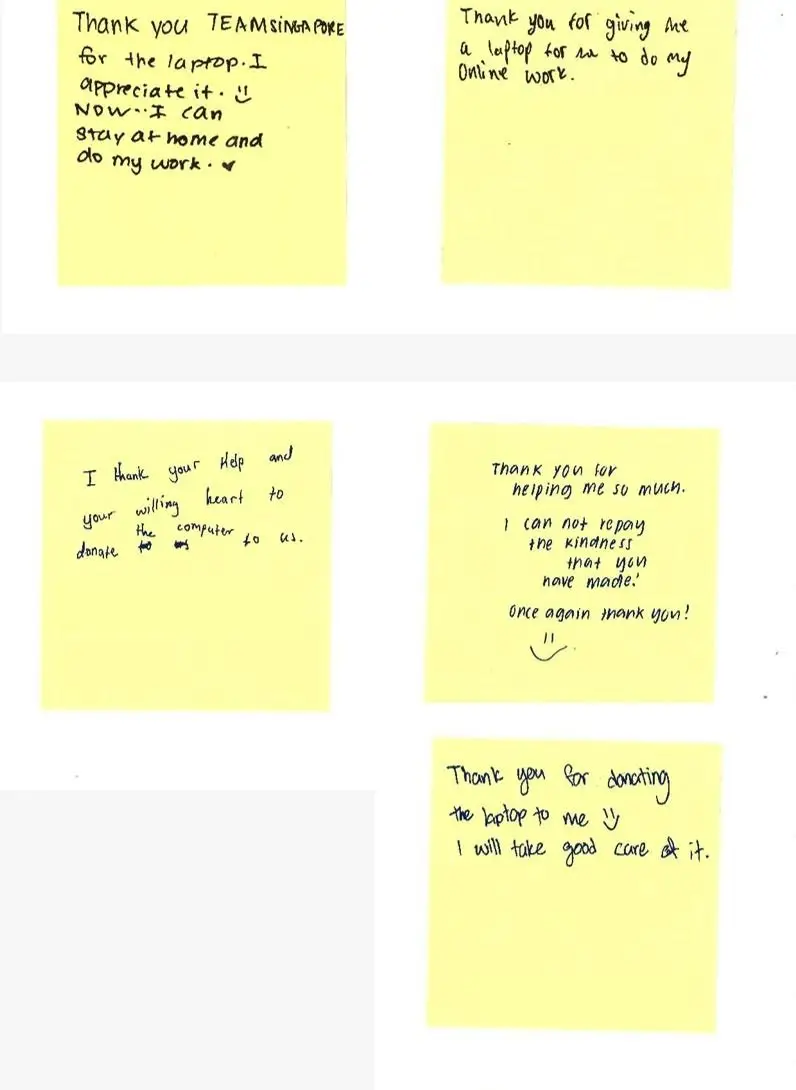 Thank you TEAMSiNGAPORE
for the laptop. I
appreciate it.
NOW.. I can
stay at home and
do my work.
Thank you for giving me
a laptop for me to do my
Online work.
I thank your Help and
your willing heart to
donate the computer to us.
Thank you for
helping me so much.
I can not repay
the kindness
that you
have made!
Once again thank you!
Thank you for donating
the laptop to me
I will take good care of it.